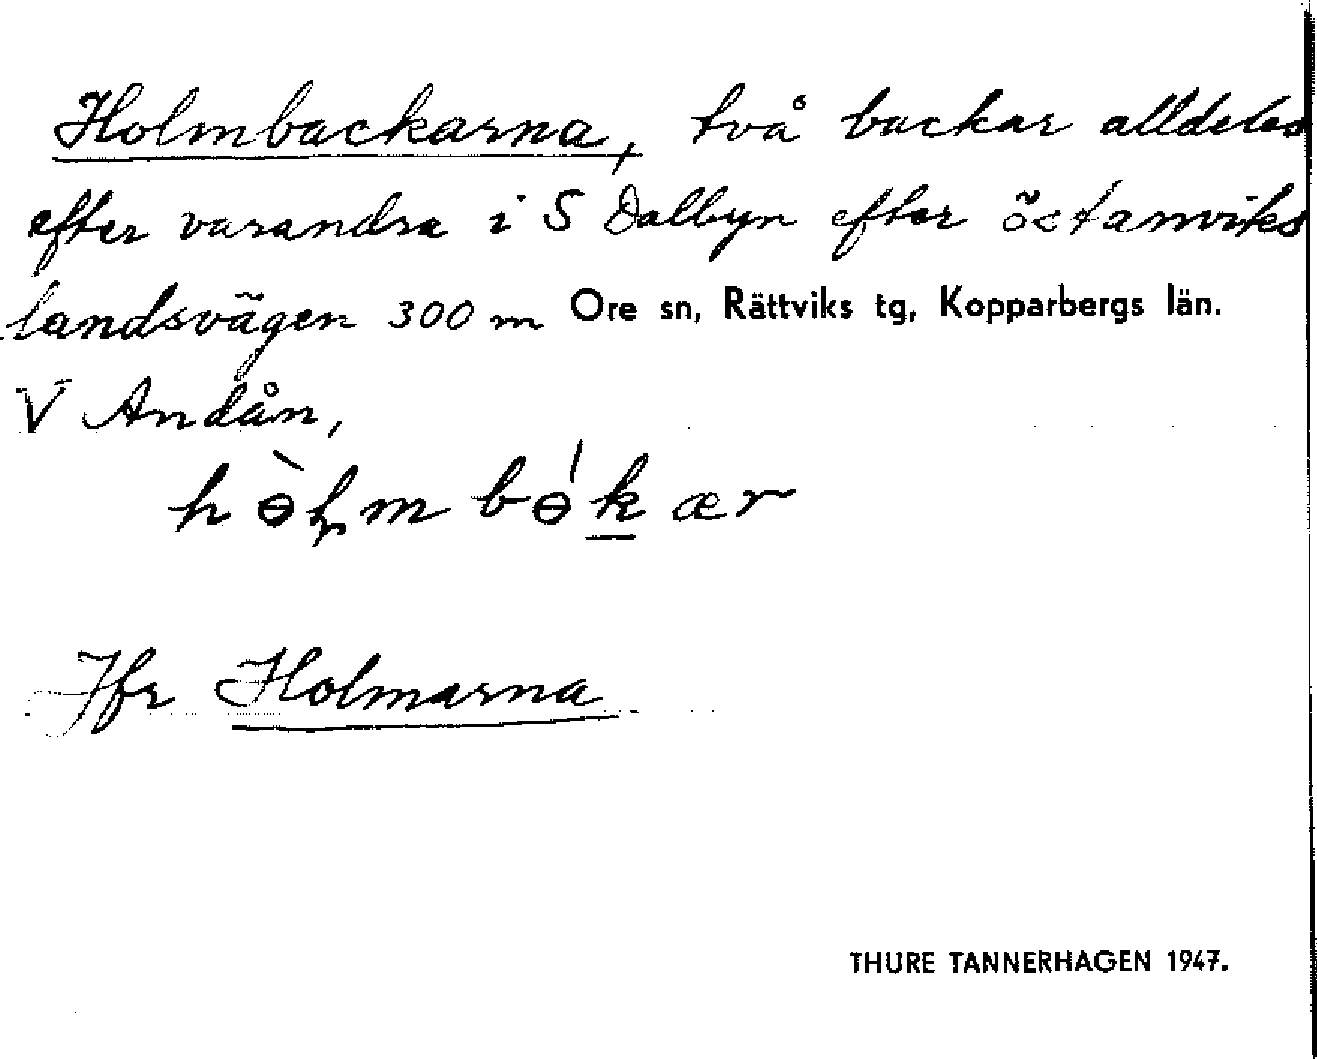 Holmbackarna, två backar alldeles
efter varandra i S Dalbyn efter östanviks
landsvägen 300 m Ore sn, Rättviks tg, Kopparbergs län.
V Andån,
hɵ̀ɽm bɵ́k̲ær
Jfr Holmarna
THURE TANNERHAGEN 1947.